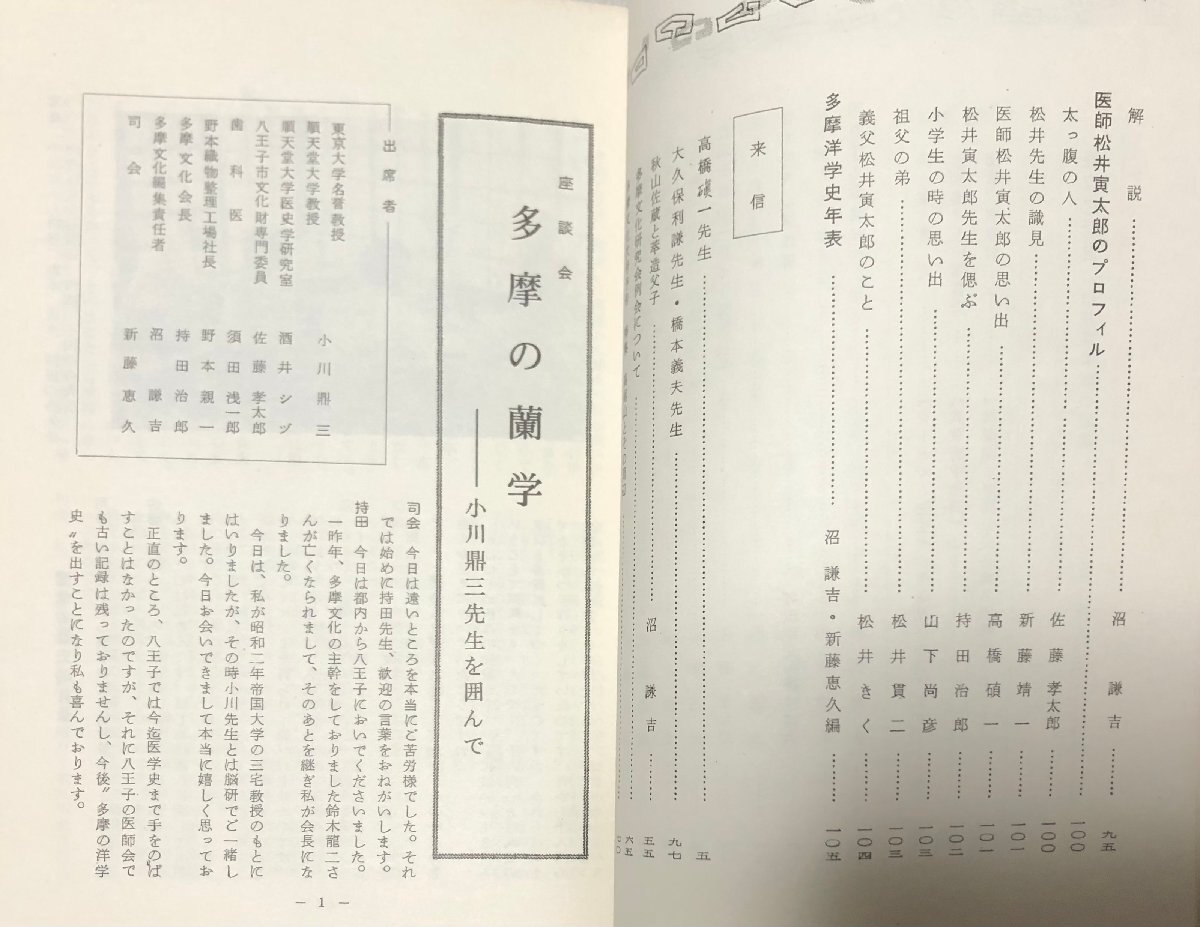 解説……………沼謙吉……九五
医師松井寅太郎のプロフィル……………一〇〇
太っ腹の人……………佐藤孝太郎……一〇〇
松井先生の識見……………新藤靖一……一〇一
医師松井寅太郎の思い出……………高橋碩一……一〇一
松井寅太郎先生を偲ぶ……………持田治郎……一〇二
小学生の時の思い出……………山下尚彦……一〇三
祖父の弟……………松井貫二……一〇三
義父松井寅太郎のこと……………松井きく……一〇四
多摩洋学史年表……………沼謙吉・新藤恵久編……一〇五
来信
高橋磌一先生……………五
大久保利謙先生・橋本義夫先生……………九七
秋山佐蔵と萃造父子……………沼謙吉……五五
多摩文化研究会例会について……………六五
座談会
多摩の蘭学
――小川鼎三先生を囲んで
出席者
東京大学名誉教授
順天堂大学教授 小川鼎三
順天堂大学医史学研究室 酒井シヅ
八王子市文化財専門委員 佐藤孝太郎
歯科医 須田浅一郎
野本織物整理工場社長 野本親一
多摩文化会長 持田治郎
多摩文化編集責任者 沼謙吉
司会 新藤恵久
司会 今日は遠いところを本当にご苦労様でした。それ
では始めに持田先生、歓迎の言葉をおねがいします。
持田 今日は都内から八王子においでくださいました。
一昨年、多摩文化の主幹をしておりました鈴木龍二さ
んが亡くなられまして、そのあとを継ぎ私が会長にな
りました。
今日は、私が昭和二年帝国大学の三宅教授のもとに
はいりましたが、その時小川先生とは脳研でご一緒し
ました。今日お会いできまして本当に嬉しく思ってお
ります。
正直のところ、八王子では今迄医学史まで手をのば
すことはなかったのですが、それに八王子の医師会で
も古い記録は残っておりませんし、今後〝多摩の洋学
史〟を出すことになり私も喜んでおります。
— 1 —